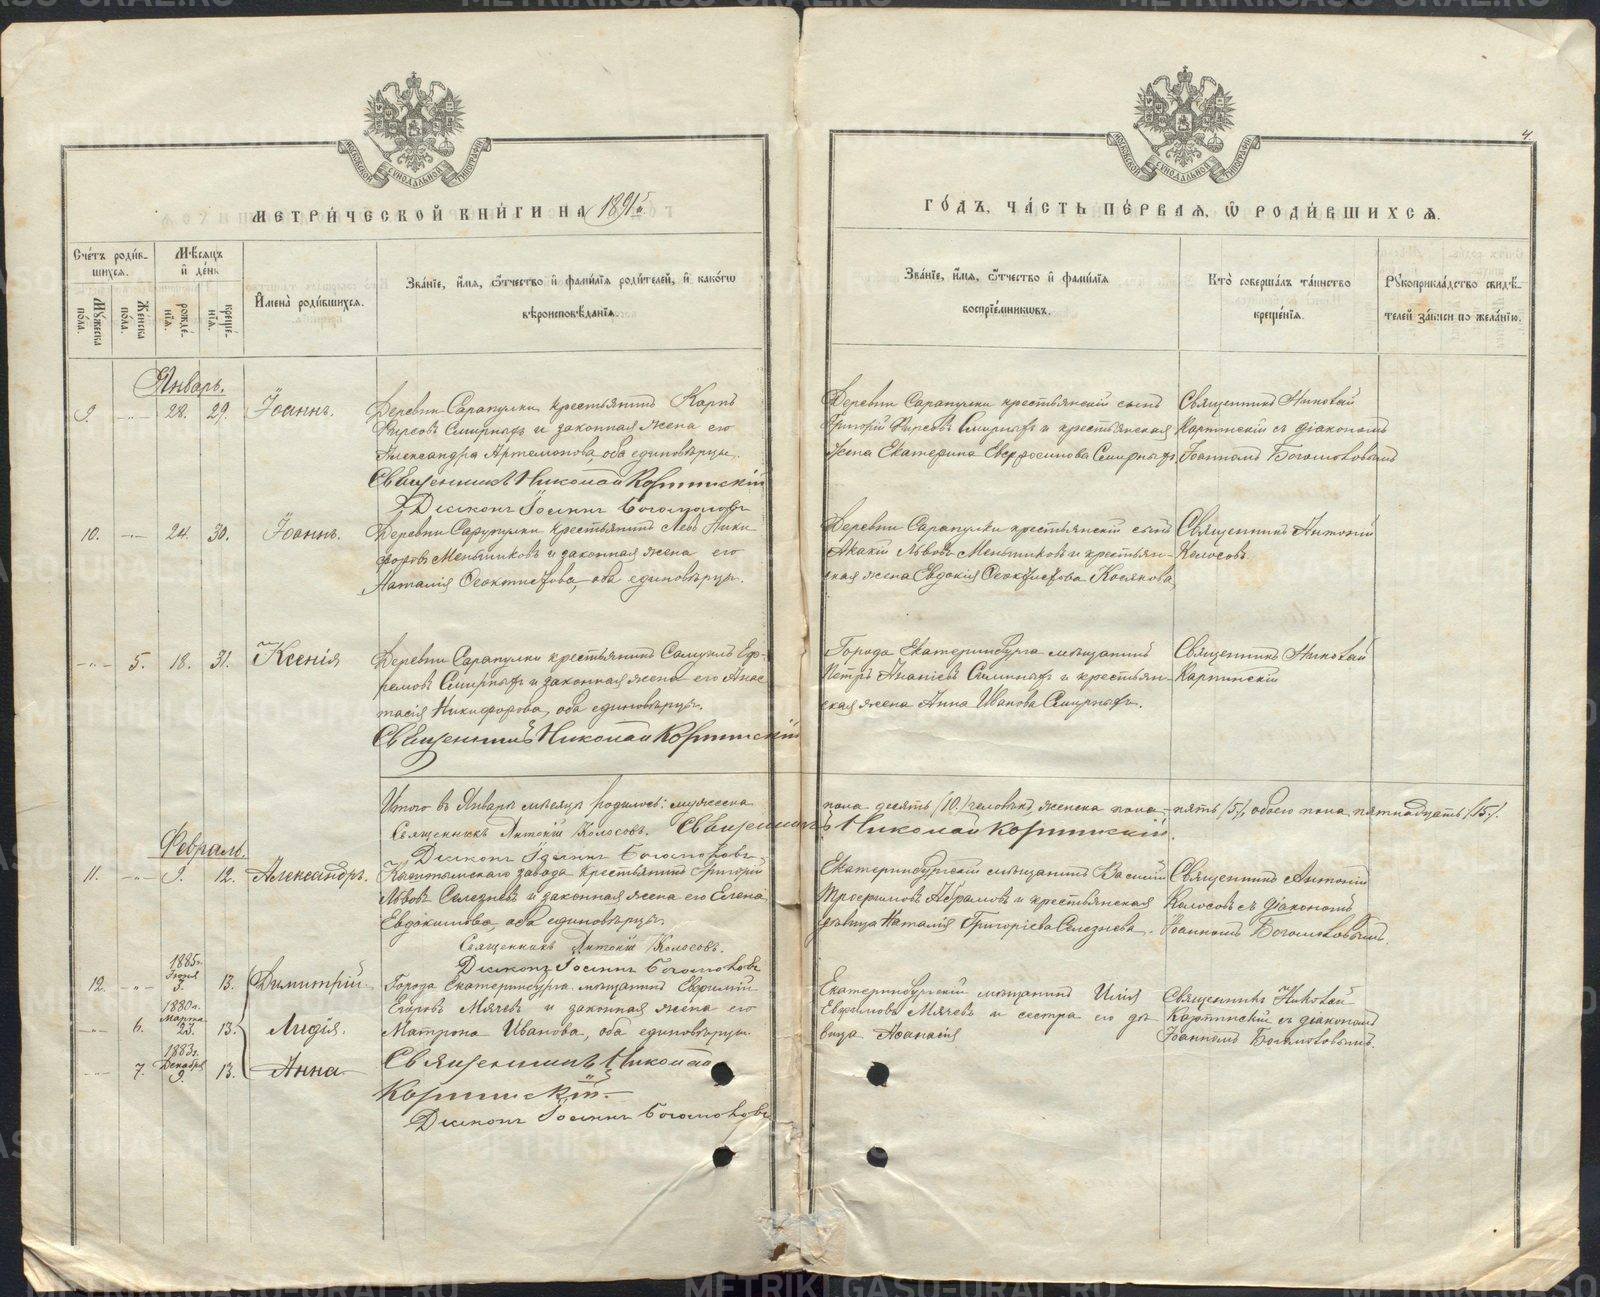 МЕТРИЧЕСКОЙ КНИГИ НА 1891й
Счетъ родившихся.
Мужеска пола.
Женска пола.
Мѣсяцъ и день
рожденія.
крещенія.
Имена родившихся.
Званіе, имя, отчество и фамилія родителей, и какого
вѣроисповѣданія.
Январь.
9. -„- 28. 29. Іоаннъ. Деревни Сарапулки крестьянинъ Карпъ
Фирсовъ Смирныхъ и законная жена его
Александра Артемонова, оба единовѣрцы.
Священникъ Николай Карпинскій
Діаконъ Іоаннъ Богомоловъ
10. -„- 24. 30. Іоаннъ. Деревни Сарапулки крестьянинъ Левъ Ники-
форовъ Меньшиковъ и законная жена его
Наталія Ѳеоктистова, оба единовѣрцы.
-„- 5. 18. 31. Ксенія Деревни Сарапулки крестьянинъ Самуилъ Еф-
ремовъ Смирныхъ и законная жена его Анас
тасія Никифорова, оба единовѣрцы.
Священникъ Николай Карпинскій
Итого въ Январѣ мѣсяцѣ родилось: мужеска
Священникъ Антоній Колосовъ. Священникъ
Діаконъ Іоаннъ Богомоловъ
Февраль.
11. -„- 9. 12. Александръ. завода крестьянинъ Григорій
Львовъ Селезневъ и законная жена его Елена
Евдокимова, оба единовѣрцы.
Священникъ Антоній Колосовъ.
Діаконъ Іоаннъ Богомоловъ
12. -„- 1885г. 3. 13. Димитрій Города Екатеринбурга мѣщанинъ Евфимій
-„- 6. 1880г. Марта 23. 13. Лидія. Егоровъ Мячевъ и законная жена его
Матрона Иванова, оба единовѣрцы.
-„- 7. 1883г. Декабря 9. 13. Анна Священникъ Николай
Карпинскій.
Діаконъ Іоаннъ Богомоловъ
4.
ГОДЪ, ЧАСТЬ ПЕРВАЯ, Ѡ РОДИВШИХСЯ.
Званіе, имя, отчество и фамилія
воспріемниковъ.
Кто совершалъ таинство
крещенія.
Рукоприкладство свидѣ-
телей записи по желанію.
Деревни Сарапулки крестьянскій сынъ
Григорій Фирсовъ Смирныхъ и крестьянская
жена Екатерина Евфросинова Смирныхъ
Священникъ Николай
Карпинскій съ діакономъ
Іоанномъ Богомоловымъ
Деревни Сарапулки крестьянскій сынъ
Акакій Львовъ Меньшиковъ и крестьян-
ская жена Евдокія Ѳеоктистова Косякова
Священникъ Антоній
Колосовъ
Города Екатеринбурга мѣщанинъ
Петръ Ананіевъ и крестьян-
ская жена Анна Иванова Смирныхъ.
Священникъ Николай
Карпинскій
пола десять (10) человѣкъ, женска пола - пять (5), обоего пола пятнадцать (15).
Николай Карпинскій.
Екатеринбургскій мѣщанинъ Василій
Трофимовъ Абрамовъ и крестьянская
дѣвица Наталія Григоріева Селезнева.
Священникъ Антоній
Колосовъ съ діакономъ
Іоанномъ Богомоловымъ.
Екатеринбургскій мѣщанинъ Илія
Евфимовъ Мячевъ и сестра его дѣ-
вица Аѳанасія
Священникъ Николай
Карпинскій съ діакономъ
Іоанномъ Богомоловымъ.
METRIKI.GASO-URAL.RU